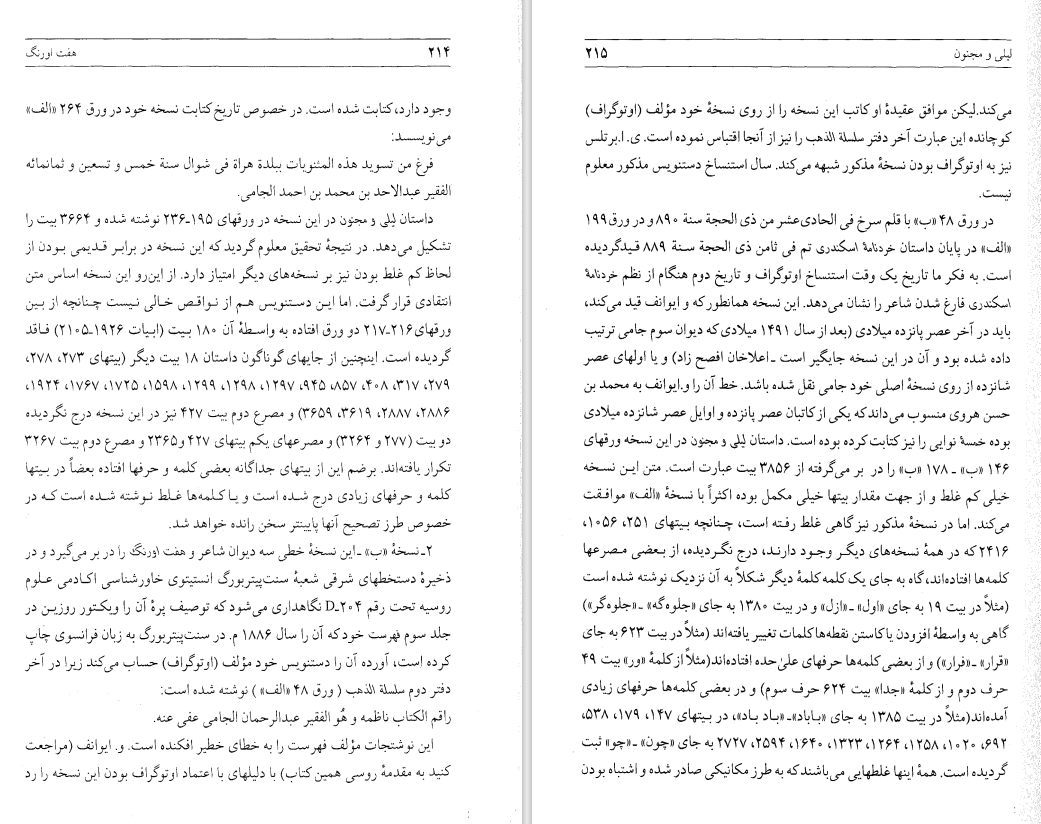 ۲۱۴ هفت اورنگ
وجود دارد، کتابت شده است. در خصوص تاریخ کتابت نسخه خود در ورق ۲۶۴ «الف»
می‌نویسد:
فرغ من تسوید هذه المثنویات ببلدة هراة فی شوال سنة خمس و تسعین و ثمانمائه
الفقیر عبدالاحد بن محمد بن احمد الجامی.
داستان لیلی و مجنون در این نسخه در ورقهای ۱۹۵ـ۲۳۶ نوشته شده و ۳۶۶۴ بیت را
تشکیل می‌دهد. در نتیجهٔ تحقیق معلوم گردید که این نسخه در برابر قدیمی بودن از
لحاظ کم غلط بودن نیز بر نسخه‌های دیگر امتیاز دارد. از این‌رو این نسخه اساس متن
انتقادی قرار گرفت. اما این دستنویس هم از نواقص خالی نیست چنانچه از بین
ورقهای ۲۱۶ـ۲۱۷ دو ورق افتاده به واسطهٔ آن ۱۸۰ بیت (ابیات ۱۹۲۶ـ۲۱۰۵) فاقد
گردیده است. اینچنین از جایهای گوناگون داستان ۱۸ بیت دیگر (بیتهای ۲۷۳، ۲۷۸،
۲۷۹، ۳۱۷، ۴۰۸، ۸۵۷، ۹۴۵، ۱۲۹۷، ۱۲۹۸، ۱۲۹۹، ۱۵۹۸، ۱۷۲۵، ۱۷۶۷، ۱۹۲۴،
۲۸۸۶، ۲۸۸۷، ۳۶۱۹، ۳۶۵۹) و مصرع دوم بیت ۴۲۷ نیز در این نسخه درج نگردیده
دو بیت (۲۷۷ و ۳۲۶۴) و مصرعهای یکم بیتهای ۴۲۷ و ۲۳۶۵ و مصرع دوم بیت ۳۲۶۷
تکرار یافته‌اند. برضم این از بیتهای جداگانه بعضی کلمه و حرفها افتاده بعضاً در بیتها
کلمه و حرفهای زیادی درج شده است و یا کلمه‌ها غلط نوشته شده است که در
خصوص طرز تصحیح آنها پایینتر سخن رانده خواهد شد.
۲ـ نسخهٔ «ب» ـ این نسخهٔ خطی سه دیوان شاعر و هفت اورنگ را در بر می‌گیرد و در
ذخیرهٔ دستخطهای شرقی شعبهٔ سنت‌پیتربورگ انستیتوی خاورشناسی اکادمی علوم
روسیه تحت رقم D-۲۰۴ نگاهداری می‌شود که توصیف پرهٔ آن را ویکتور روزین در
جلد سوم فهرست خود که آن را سال ۱۸۸۶ م. در سنت‌پیتربورگ به زبان فرانسوی چاپ
کرده است، آورده آن را دستنویس خود مؤلف (اوتوگراف) حساب می‌کند زیرا در آخر
دفتر دوم سلسلة الذهب (ورق ۴۸ «الف») نوشته شده است:
راقم الکتاب ناظمه و هُو الفقیر عبدالرحمان الجامی عفی عنه.
این نوشتجات مؤلف فهرست را به خطای خطیر افکنده است. و. ایوانف (مراجعت
کنید به مقدمهٔ روسی همین کتاب) با دلیلهای با اعتماد اوتوگراف بودن این نسخه را رد
لیلی و مجنون ۲۱۵
می‌کند. لیکن موافق عقیدهٔ او کاتب این نسخه را از روی نسخهٔ خود مؤلف (اوتوگراف)
کوچانده این عبارت آخر دفتر سلسلة الذهب را نیز از آنجا اقتباس نموده است. ی. ا. برتلس
نیز به اوتوگراف بودن نسخهٔ مذکور شبهه می‌کند. سال استنساخ دستنویس مذکور معلوم
نیست.
در ورق ۴۸ «ب» با قلم سرخ فی الحادی‌عشر من ذی الحجة سنة ۸۹۰ و در ورق ۱۹۹
«الف» در پایان داستان خردنامهٔ اسکندری تم فی ثامن ذی الحجة سنة ۸۸۹ قیدگردیده
است. به فکر ما تاریخ یک وقت استنساخ اوتوگراف و تاریخ دوم هنگام از نظم خردنامهٔ
اسکندری فارغ شدن شاعر را نشان می‌دهد. این نسخه همانطور که و ایوانف قید می‌کند،
باید در آخر عصر پانزده میلادی (بعد از سال ۱۴۹۱ میلادی که دیوان سوم جامی ترتیب
داده شده بود و آن در این نسخه جایگیر است ـ اعلاخان افصح زاد) و یا اولهای عصر
شانزده از روی نسخهٔ اصلی خود جامی نقل شده باشد. خط آن را و.ایوانف به محمد بن
حسن هروی منسوب می‌داند که یکی از کاتبان عصر پانزده و اوایل عصر شانزده میلادی
بوده خمسهٔ نوایی را نیز کتابت کرده بوده است. داستان لیلی و مجنون در این نسخه ورقهای
۱۴۶ «ب» ـ ۱۷۸ «ب» را در بر می‌گرفته از ۳۸۵۶ بیت عبارت است. متن این نسخه
خیلی کم غلط و از جهت مقدار بیتها خیلی مکمل بوده اکثراً با نسخهٔ «الف» موافقت
می‌کند. اما در نسخهٔ مذکور نیز گاهی غلط رفته است، چنانچه بیتهای ۲۵۱، ۱۰۵۶،
۲۴۱۶ که در همهٔ نسخه‌های دیگر وجود دارند، درج نگردیده، از بعضی مصرعها
کلمه‌ها افتاده‌اند، گاه به جای یک کلمه کلمهٔ دیگر شکلاً به آن نزدیک نوشته شده است
(مثلاً در بیت ۱۹ به جای «اول» ـ «ازل» و در بیت ۱۳۸۰ به جای «جلوه‌گه» ـ «جلوه‌گر»)
گاهی به واسطهٔ افزودن یا کاستن نقطه‌ها کلمات تغییر یافته‌اند (مثلاً در بیت ۶۲۳ به جای
«قرار» ـ «فرار») و از بعضی کلمه‌ها حرفهای علی‌حده افتاده‌اند (مثلاً از کلمهٔ «ور» بیت ۴۹
حرف دوم و از کلمهٔ «جدا» بیت ۶۲۴ حرف سوم) و در بعضی کلمه‌ها حرفهای زیادی
آمده‌اند (مثلاً در بیت ۱۳۸۵ به جای «باباد» ـ «باد باد»، در بیتهای ۱۴۷، ۱۷۹، ۵۳۸،
۶۹۲، ۱۰۲۰، ۱۲۵۸، ۱۲۶۴، ۱۳۲۳، ۱۶۴۰، ۲۵۹۴، ۲۷۲۷ به جای «چون» ـ «چو» ثبت
گردیده است. همهٔ اینها غلطهایی می‌باشند که به طرز مکانیکی صادر شده و اشتباه بودن